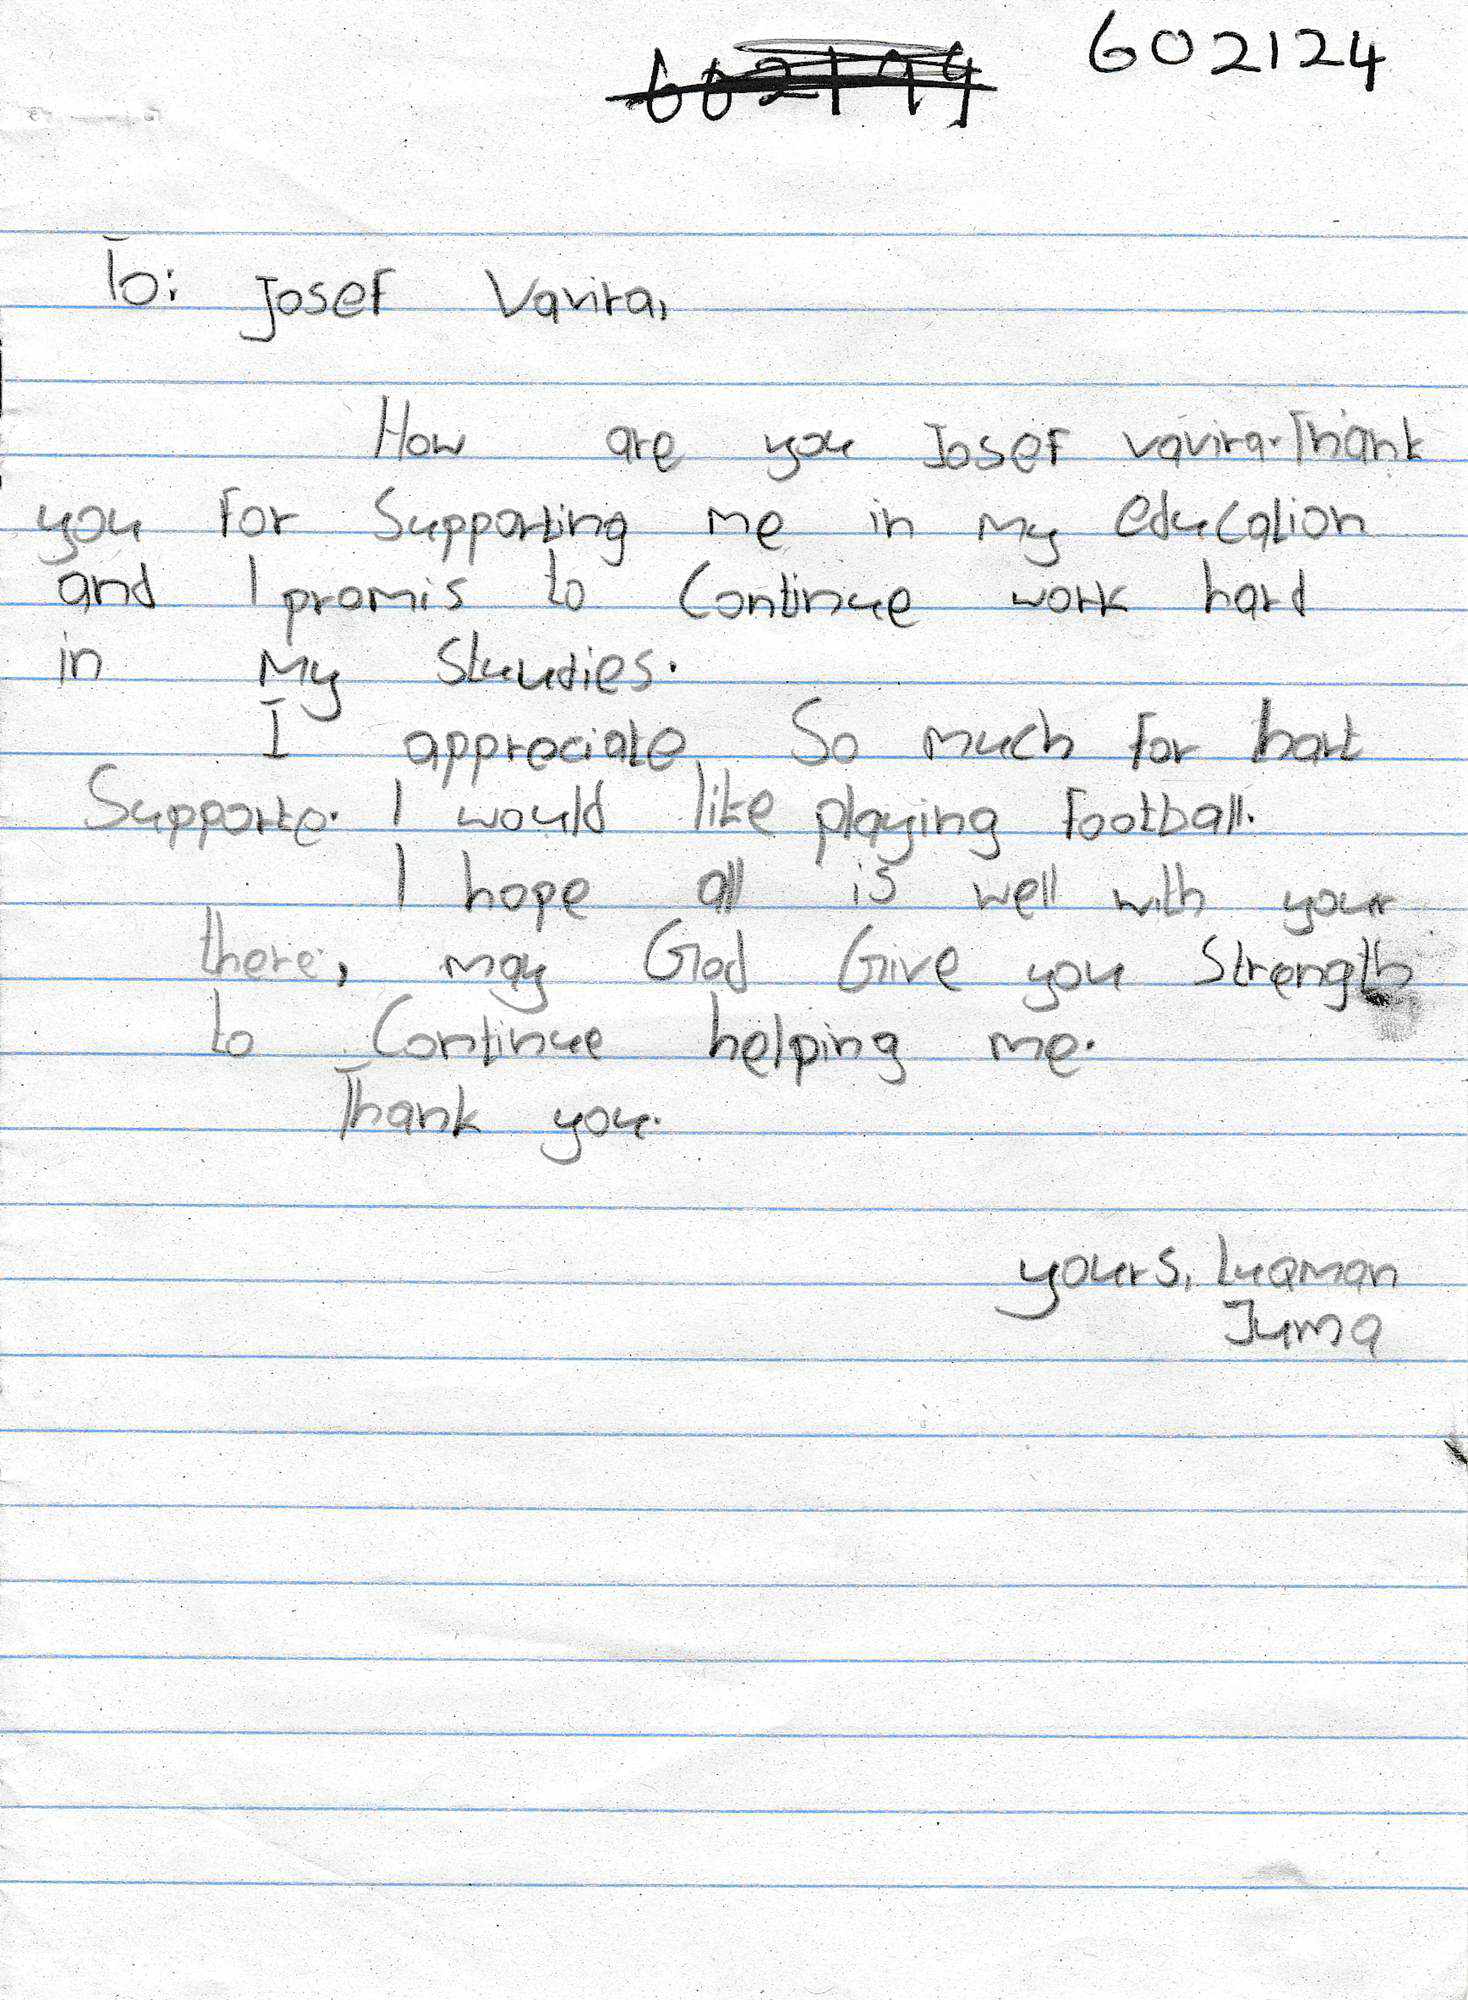 602124
To: Josef Vavira,
How are you Josef vavira. Thank
you for Supporting me in my education
and I promis to Continue work hard
in my Stuudies.
I appreciate So much for hart
Supporte. I would like playing football.
I hope all is well with your
there, may God Give you Strength
to Continue helping me.
Thank you.
yours, Luqman
Juma